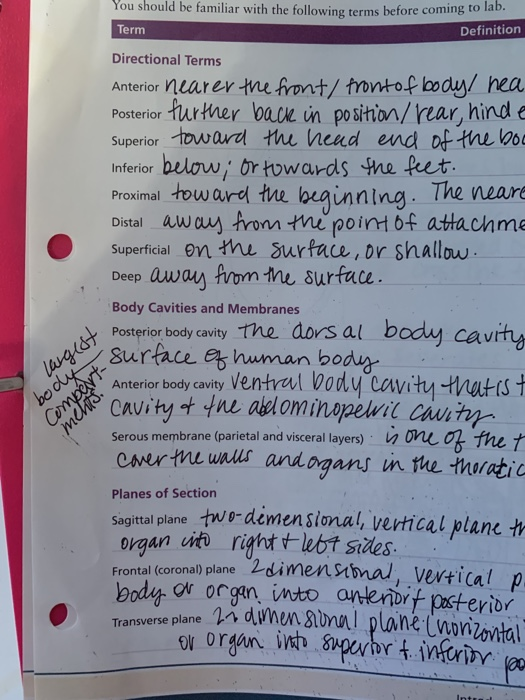 You should be familiar with the following terms before coming to lab.
Term Definition
Directional Terms
Anterior nearer the front/ front of body/ hea
Posterior further back in position/rear, hind e
Superior toward the head end of the bo
Inferior below; or towards the feet.
Proximal toward the beginning. The neare
Distal away from the point of attachme
Superficial on the surface, or shallow.
Deep away from the surface.
Body Cavities and Membranes
Posterior body cavity the dorsal body cavity
surface of human body
largest
body
compart-
ments.
Anterior body cavity Ventral body cavity that is t
cavity & the abdominopelvic cavity.
Serous membrane (parietal and visceral layers) is one of the t
cover the walls and organs in the thoratic
Planes of Section
Sagittal plane two-demensional, vertical plane th
organ into right & left sides.
Frontal (coronal) plane 2dimensional, vertical p
body or organ into anterior & posterior
Transverse plane dimensional plane (horizontal
or organ into superior & inferior po